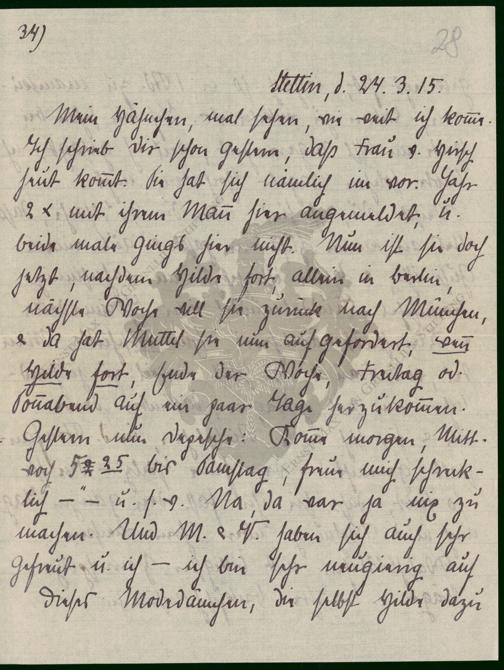 34)
28
Stettin, d. 24. 3. 15.
Mein Hähnchen, mal sehen, wie weit ich komme.
Ich schrieb dir schon gestern, daß Frau v. Hirsch
heut kommt. Sie hat sich nämlich im vor. Jahr
2 x mit ihrem Mann hier angemeldet, u.
beide male gings hier nicht. Nun ist sie doch
jetzt, nachdem Hilde fort, allein in Berlin,
nächste Woche will sie zurück nach München,
& da hat Mutti sie nun aufgefordert, wenn
Hilde fort, Ende der Woche, Freitag od.
Sonnabend auf ein paar Tage herzukommen.
Gestern nun Depesche: Komme morgen, Mitt-
woch 5 25 bis Samstag, freue mich schreck-
lich — " — u. s. w. Na da war ja nix zu
machen. Und M. & V. haben sich auch sehr
gefreut u. ich — ich bin sehr neugierig auf
dieses Modedämchen, die selbst Hilde dazu